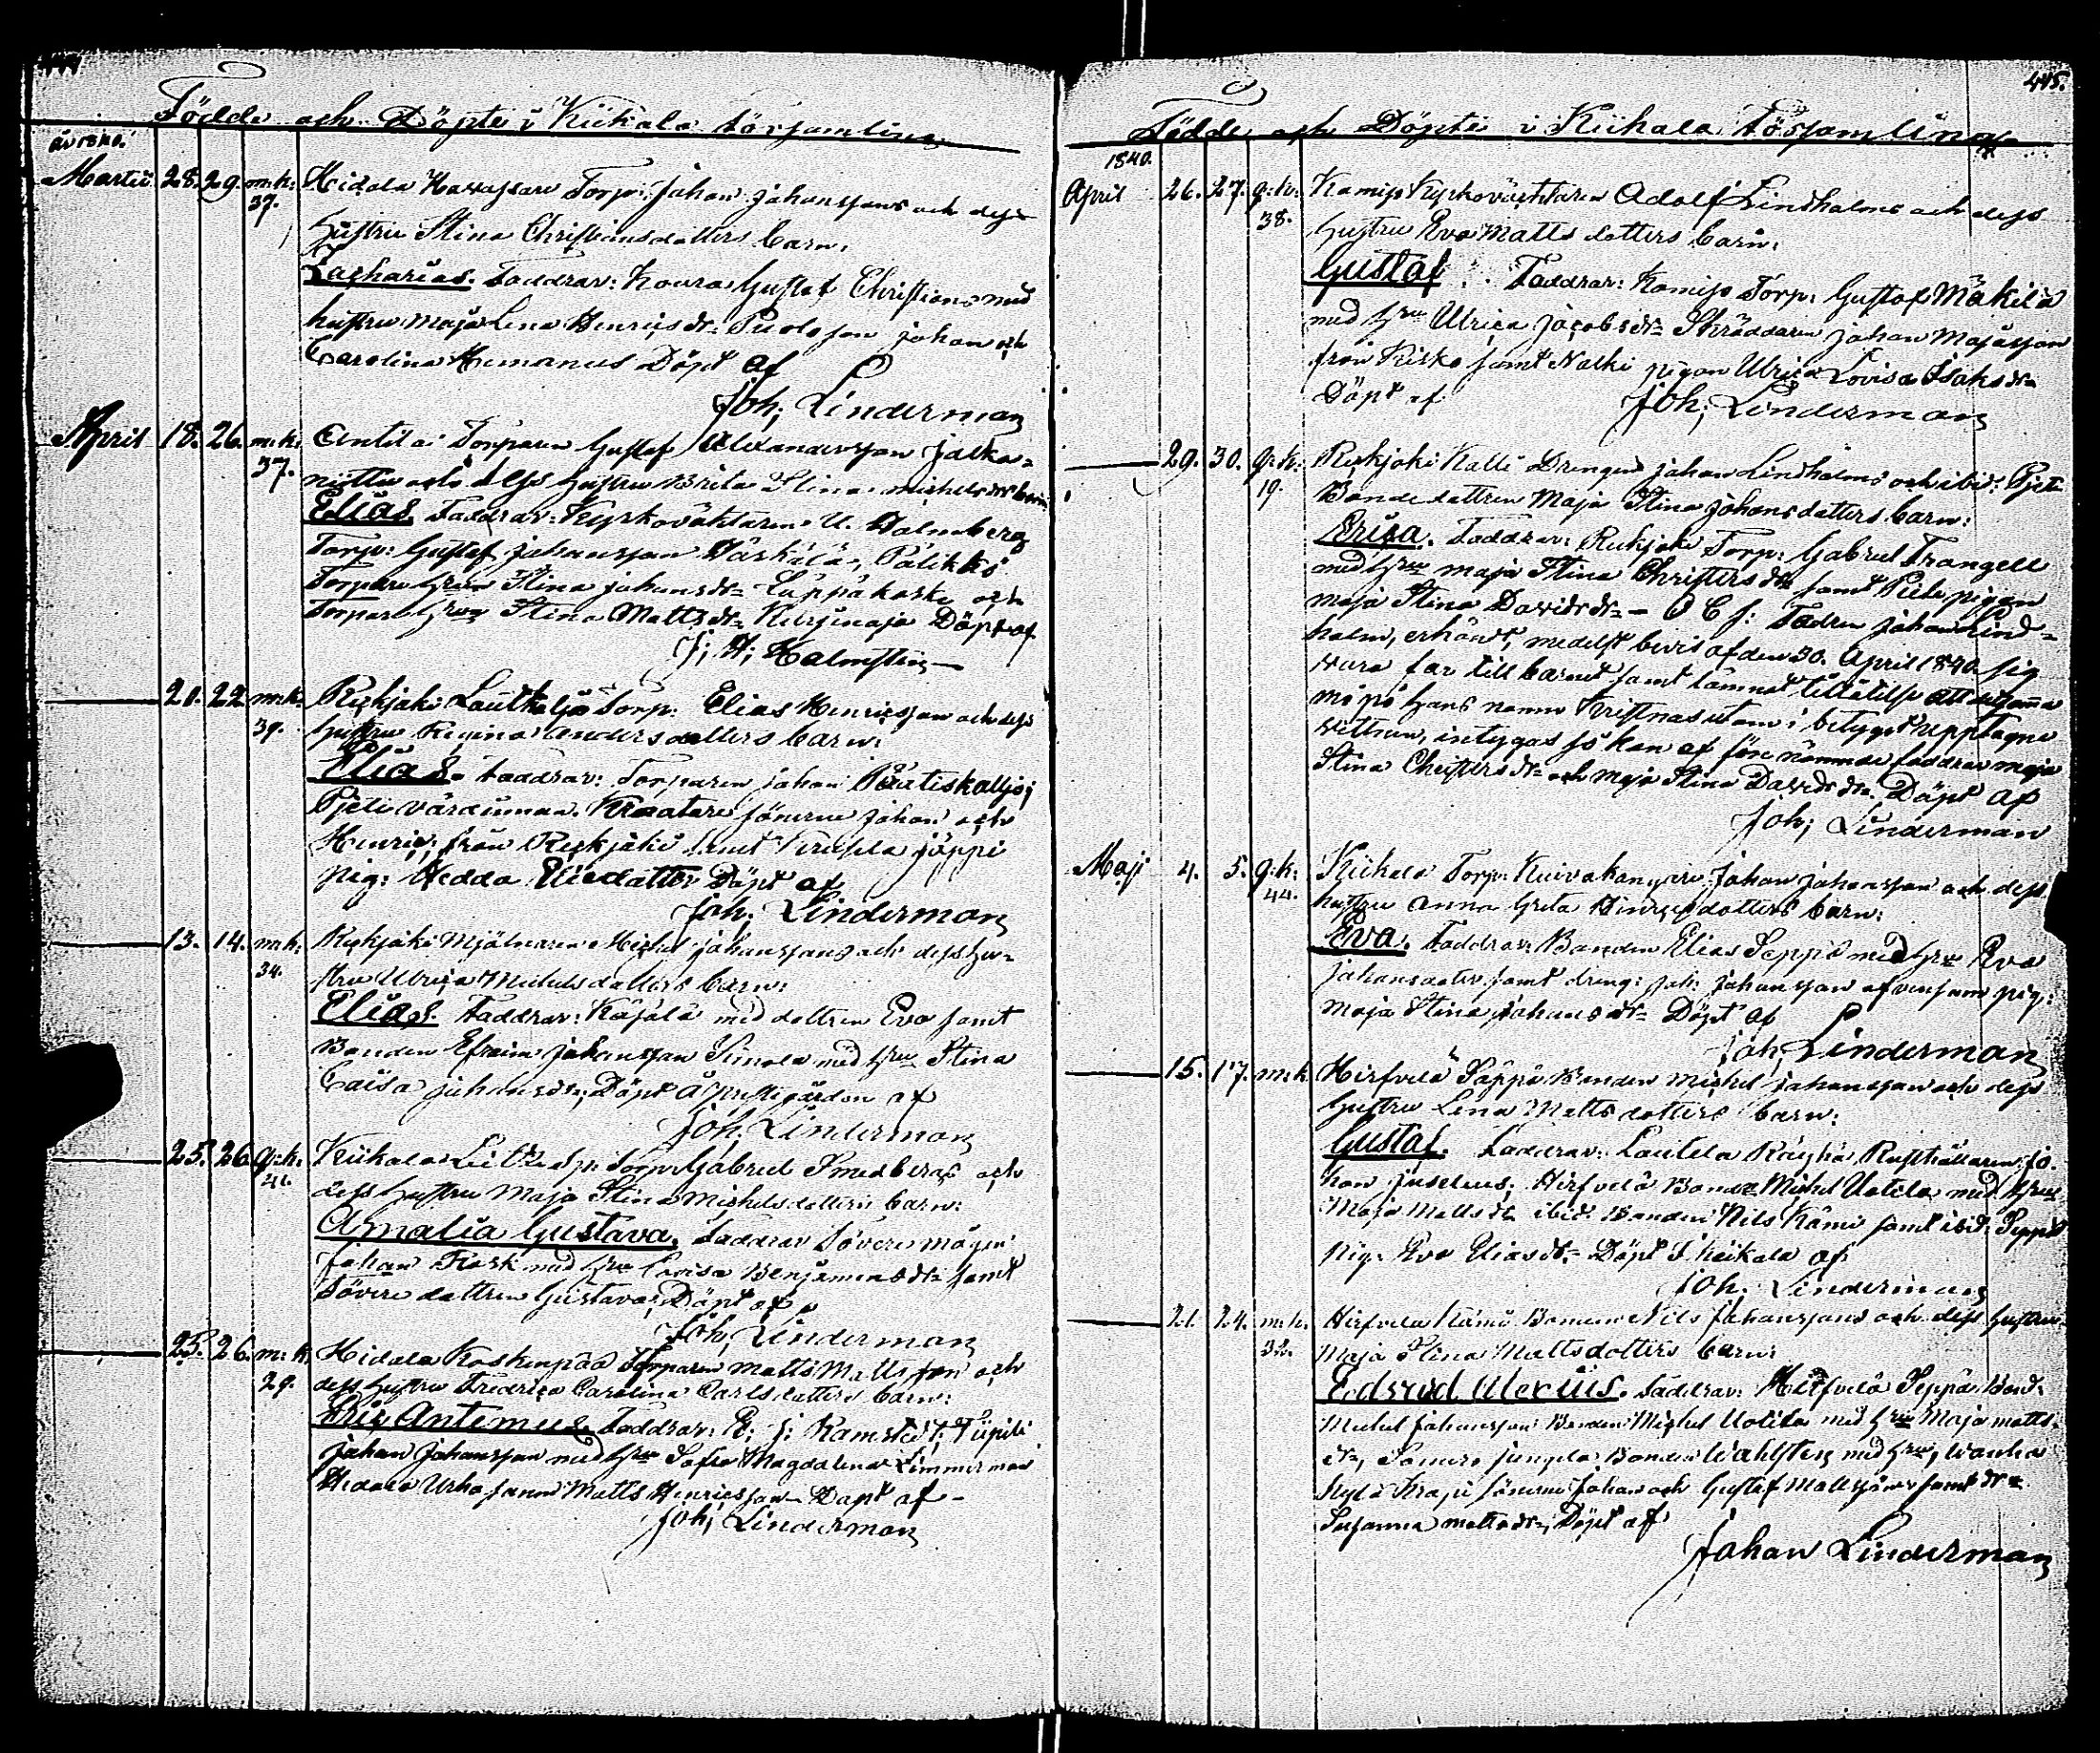 444
Födde och Döpte i Kiikala församling
Martii 28. 29. m:k: 37. Hidala Torp: Johan Johanssons och dess
hustru Stina Christiansdotters barn,
Zacharias. Faddrar: Gustaf Christians med
hustru Maja Lena Henricsdr Johan och
Carolina Döpt af
Joh; Linderman
April 18. 26. m:k: 37. Torparen Gustaf Alexandersson Jalka-
och dess hustru Brita Stina Michelsdr barn
Elias. Faddrar: Kyrkovaktaren U. Holmberg
Torp: Gustaf Johansson Härkälä, Pälikkö
Torpare hru Stina Johansdr Läppäkoski och
Torpare hru Stina Mattsdr Döpt af
J; H; Holmsten
20. 22. m:k: 39. Rekjoki Torp: Elias Henricsson och dess
hustru Regina Andersdotters barn:
Elias. Faddrar: Torparen Johan
värdinnan. sönerne Johan och
Henric, från Rekjoki samt
pig: Hedda Eliedotter Döpt af
Joh: Linderman
13. 14. m:k: 34. Rekjoki Mjölnaren Michel Johanssons och dess hu-
stru Ulrica Michelsdotters barn:
Elias. Faddrar: Käjälä med dottren Eva samt
Bonden Efraim Johansson Simola med hru Stina
Caisa Johansdr, Döpt å prestgården af
Joh; Linderman
25. 26. q:k: 41. Kiikala Torp: Gabriel Smedbergs och
dess hustru Maja Stina Michelsdotters barn:
Amalia Gustava. Faddrar
Johan med hru Lovisa Benjaminsdr samt
dottren Gustava, Döpt af
Joh; Linderman
25. 26. m:k: 29. Hidala Koskenpää Torparen Matts Mattsson och
dess hustru Fredrica Carolina Carlsdotters barn:
Eric Antemus. Faddrar: E; J: Ramstedt;
Johan Johansson med hru Sofia Magdalena Limmerman
Hidala Matts Henricsson Döpt af
Joh; Linderman
445.
Födde och Döpte i Kiikala församling
1840.
April 26. 27. q:k: 38. Komiso Kyrkoväcktaren Adolf Lindholms och dess
hustru Eva Mattsdotters barn:
Gustaf. Faddrar: Komiso Torp: Gustaf Mäkilä
med hru Ulrica Jacobsdr Skräddaren Johan Majasson
från Kisko samt Nalki pigan Ulrica Lovisa Isaksdr
Döpt af Joh; Linderman
29. 30. q:k: 19. Rekjoki Kalli Drengens Johan Lindholms och ibid:
Bondedottren Maja Stina Johansdotters barn:
Erica. Faddrar: Rekjoki Torp: Gabriel Trangell
med hru Maja Stina Christersdr samt pigan
Maja Stina Davidsdr - O C J: Fadren Johan Lind-
holm, erkändt, medelst bevis af den 30. April 1840. sig
vara far till barnet samt lämnat tillåtelse att
må på hans namn Kristnas utom i betyget upptagne
vittnen, intygas så kan af före nämnde faddrar Maja
Stina Christersdr och Maja Stina Davidsdr. Döpt af
Joh; Linderman
Maji 4. 5. q:k: 44. Kiikala Torp: Johan Johansson och dess
hustru Anna Greta Henricsdotters barn:
Eva. Faddrar: Bonden Elias Seppä med hru Eva
Johansdotter samt dreng: Joh: Johansson pig:
Maja Stina Johansdr Döpt af
Joh; Linderman
15. 17. m:k. Hirfvelä Säppä Bonden Michel Johansson och dess
hustru Lena Mattsdotters barn:
Gustaf. Faddrar: Lautela Rusthållaren Jo-
han Juselius; Hirfvelä Bonde Michel Uotila med hru
Maja Mattsdr ibid. Bonden Nils Kämi samt ibid: Seppä
pig. Eva Eliasdr. Döpt i Kiikala af
Joh: Linderman
21. 24. m:k. 32. Hirfvelä Kämi Bonden Nils Johanssons och dess hustru
Maja Stina Mattsdotters barn:
Edvard Alexius. Faddrar: Hirfvelä Seppä Bond:
Michel Johansson Bonden Michel Uotila med hru Maja Matts-
dr, Somero Bonden Wahlsten med hru, Wanha
Kylä sönerne Johan och Gustaf Mattssöner samt dr
Susanna Mattsdr, Döpt af
Johan Linderman